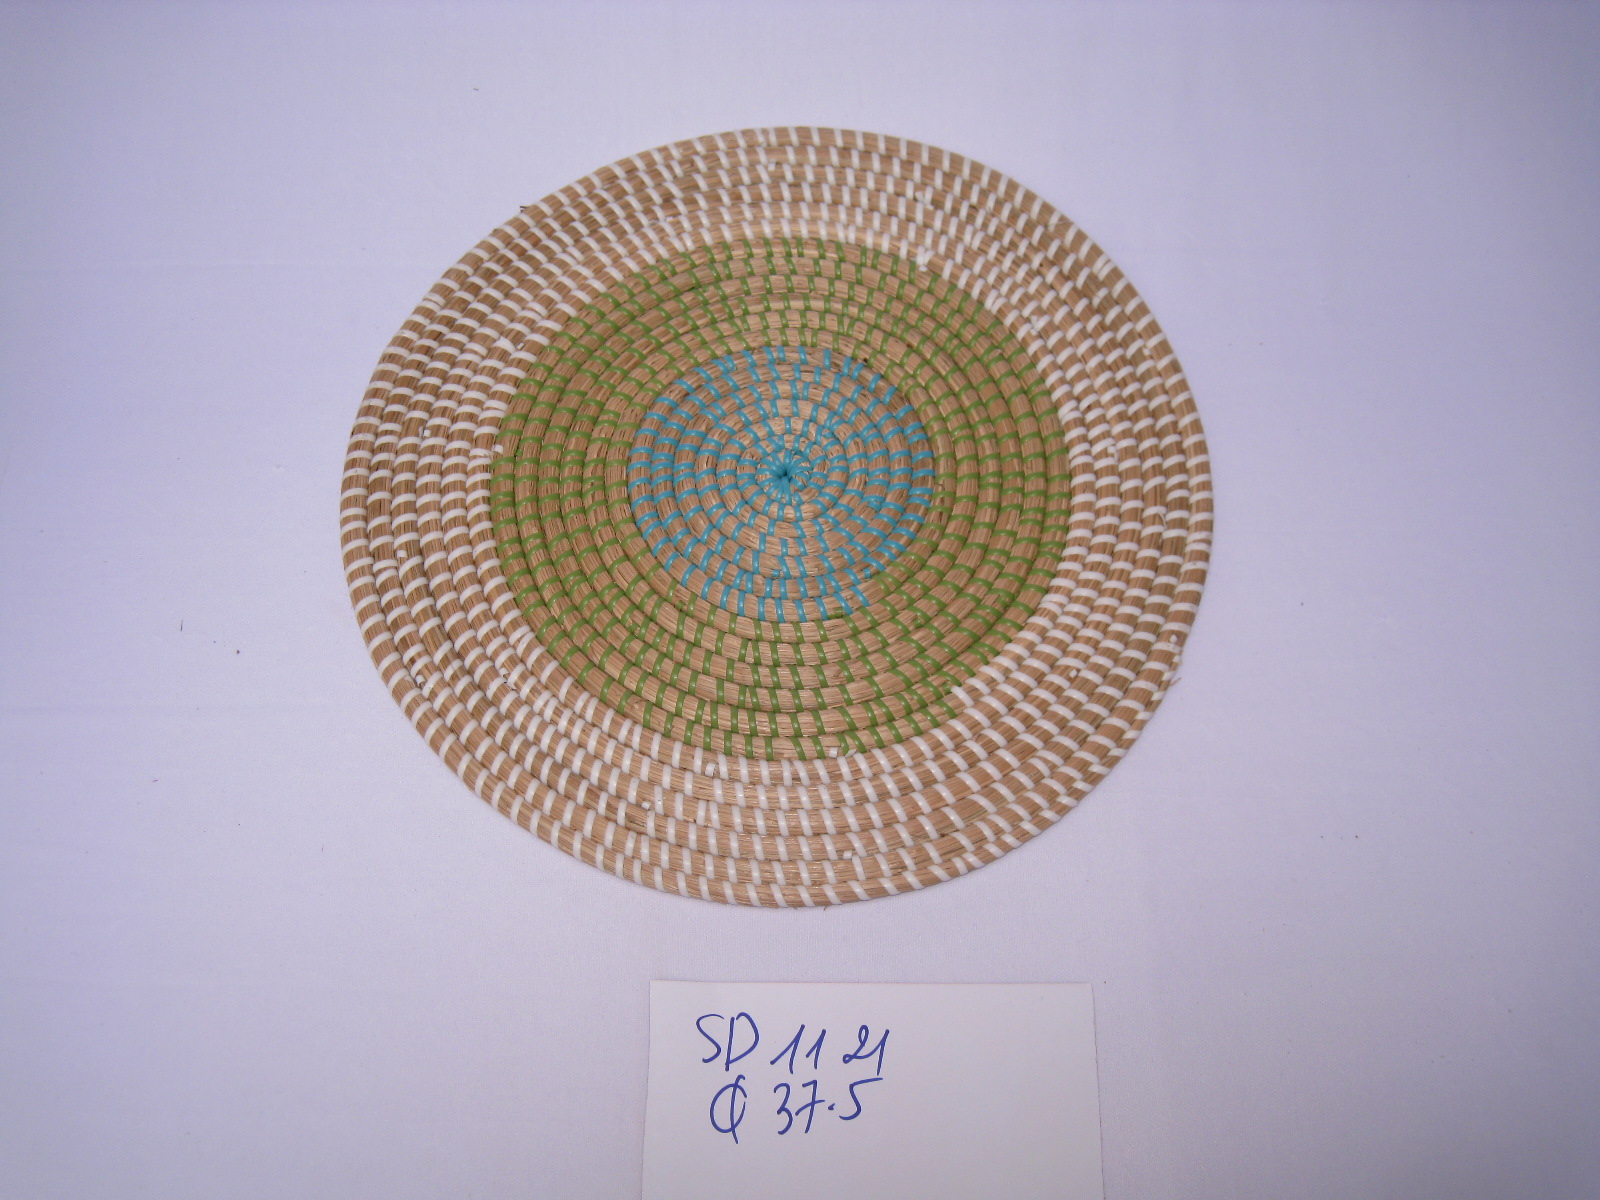 SD 11 21
Ø 37.5